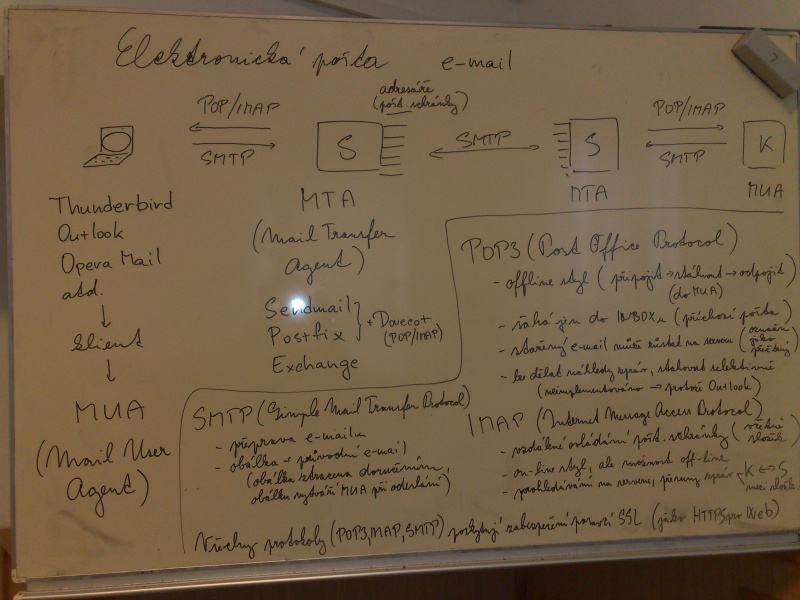 Elektronická pošta e-mail
adresáře
(pošt. schránky)
POP/IMAP
SMTP
S
SMTP
S
POP/IMAP
SMTP
K
MTA
MTA
MUA
Thunderbird
Outlook
Opera Mail
atd.
↓
Klient
↓
MUA
(Mail User
Agent)
(Mail Transfer
Agent)
Sendmail
Postfix
+ Dovecot
(POP/IMAP)
Exchange
POP3 (Post Office Protocol)
- offline styl (připojit → stáhnout → odpojit)
(do MUA)
- sahá jen do INBOXu (příchozí pošta)
- stažený e-mail může zůstat na serveru (označen
jako
přečtený)
- lze dělat náhledy zpráv, stahovat selektivně
(neimplementováno → protože Outlook)
SMTP (Simple Mail Transfer Protocol)
- přeprava e-mailu
- obálka + původní e-mail
(obálka ztracena doručením,
obálku vytváří MUA při odeslání)
IMAP (Internet Message Access Protocol)
- vzdálené ovládání pošt. schránky (včetně
složek)
- on-line styl, ale možnost off-line
- prohledávání na serveru, přesuny zpráv K ↔ S
mezi složk.
Všechny protokoly (POP3, IMAP, SMTP) poskytují zabezpečení pomocí SSL (jako HTTPS pro Web)